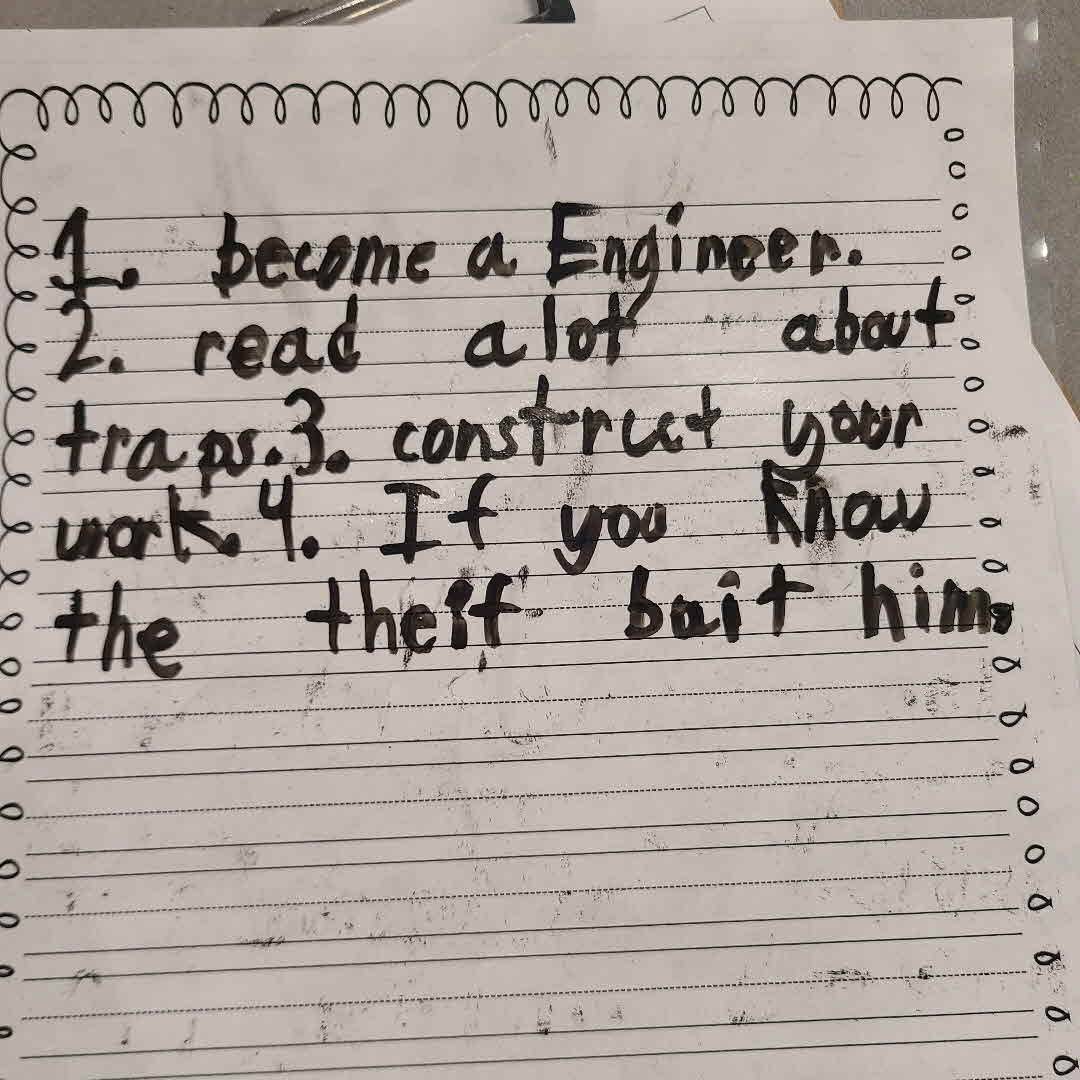 1. become a Engineer.
2. read alot about
traps.3. construct your
work.4. If you Know
the theif bait him.